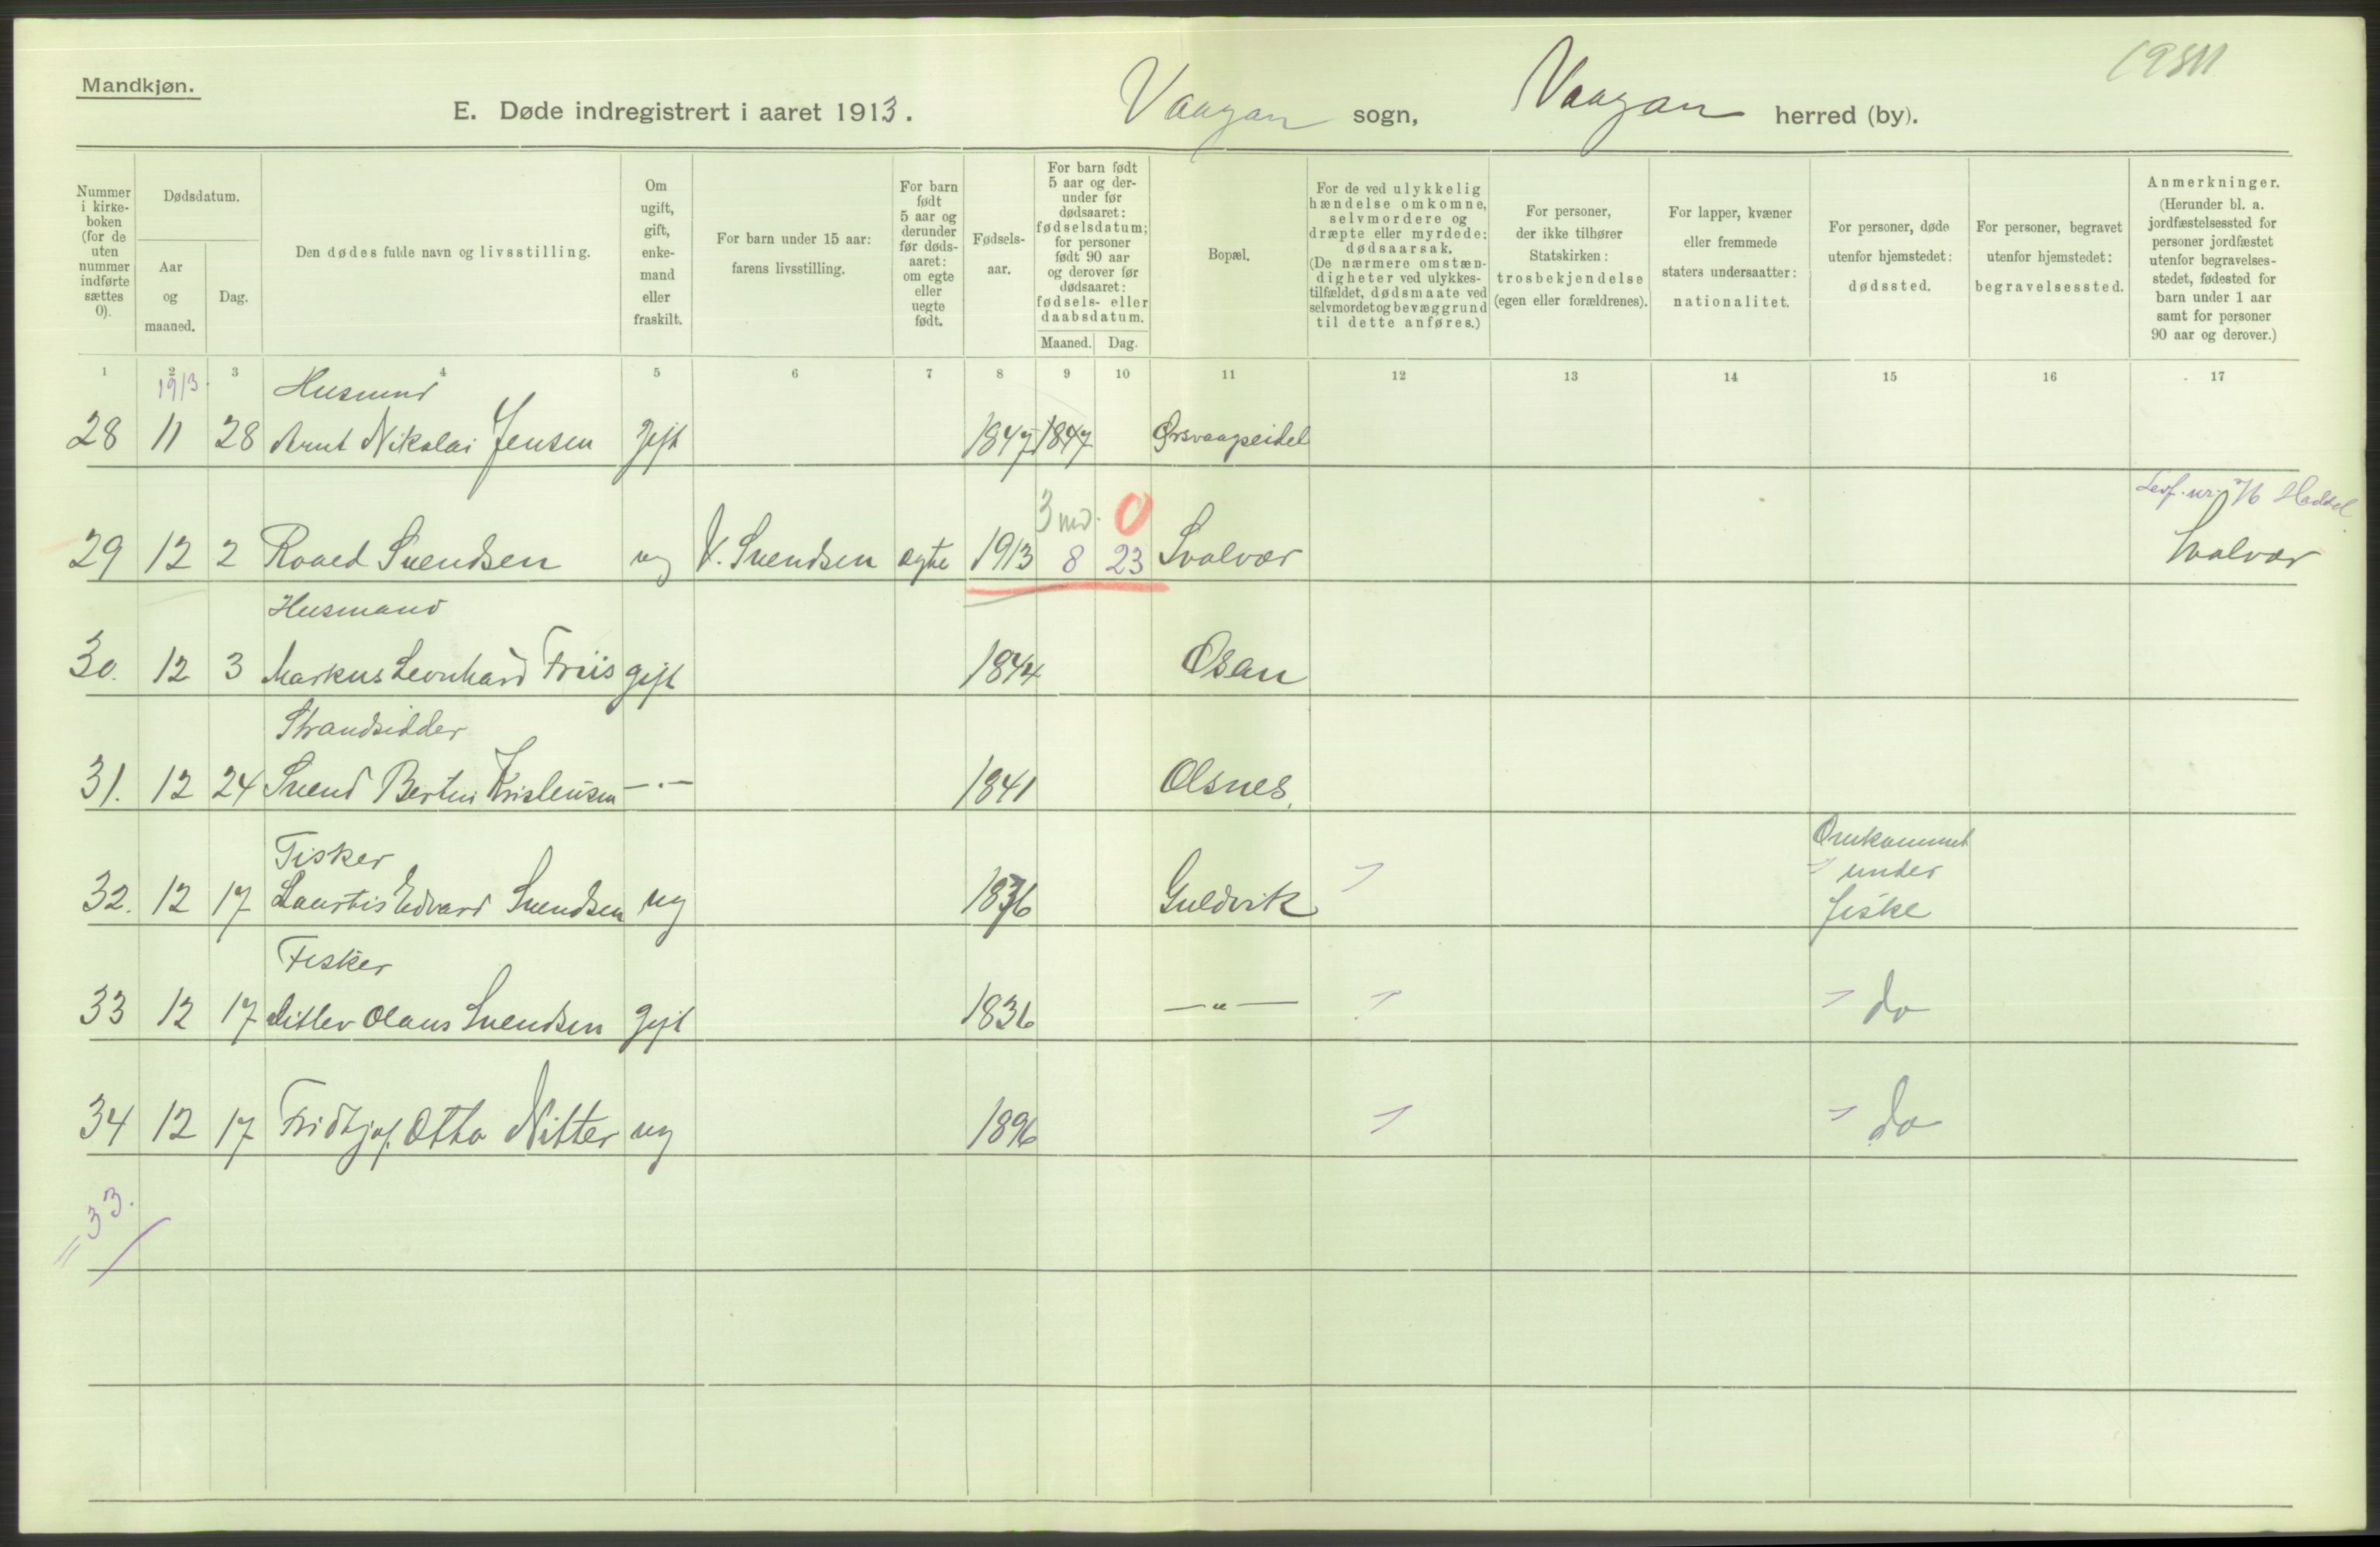 Mandkjøn.
1911
E. Døde indregistrert i aaret 1913. Vaagan sogn, Vaagan herred (by).
Nummer i kirke- boken (for de uten nummer indførte sættes 0).
Dødsdatum.
Aar og maaned.
Dag.
Den dødes fulde navn og livsstilling.
Om ugift, gift, enke- mand eller fraskilt.
For barn under 15 aar: farens livsstilling.
For barn født 5 aar og derunder før døds- aaret: om egte eller uegte født.
Fødsels- aar.
For barn født 5 aar og der- under før dødsaaret: fødselsdatum; for personer født 90 aar og derover før dødsaaret: fødsels- eller daabsdatum.
Maaned. Dag.
Bopæl.
For de ved ulykkelig hændelse omkomne, selvmordere og dræpte eller myrdede: dødsaarsak. (De nærmere omstæn- digheter ved ulykkes- tilfældet, dødsmaate ved selvmordet og bevæggrund til dette anføres.)
For personer, der ikke tilhører Statskirken: trosbekjendelse (egen eller forældrenes).
For lapper, kvæner eller fremmede staters undersaatter: nationalitet.
For personer, døde utenfor hjemstedet: dødssted.
For personer, begravet utenfor hjemstedet: begravelsessted.
Anmerkninger. (Herunder bl. a. jordfæstelsessted for personer jordfæstet utenfor begravelses- stedet, fødested for barn under 1 aar samt for personer 90 aar og derover.)
1 2 3 4 5 6 7 8 9 10 11 12 13 14 15 16 17
1913 Husmand
28 11 28 Arnt Nikolai Jensen gift 1847 1847 Ørsvaagseidet
3 md. 0
29 12 2 Roald Svendsen ug V. Svendsen egte 1913 8 23 Svolvær Svolvær
Husmand
30. 12 3 Markus Leonhard Friis gift 1844 Osan
Strandsidder
31. 12 24 Svend Bertin Kristensen -"- 1841 Olsnes.
Fisker Omkommet
32. 12 17 Lauritis Edvard Svendsen ug 1876 Guldvik under
fiske
Fisker
33 12 17 Ditlev Olaus Svendsen gift 1836 -"- do
34 12 17 Fridtjof Otto Nitter ug 1896 do
=33.